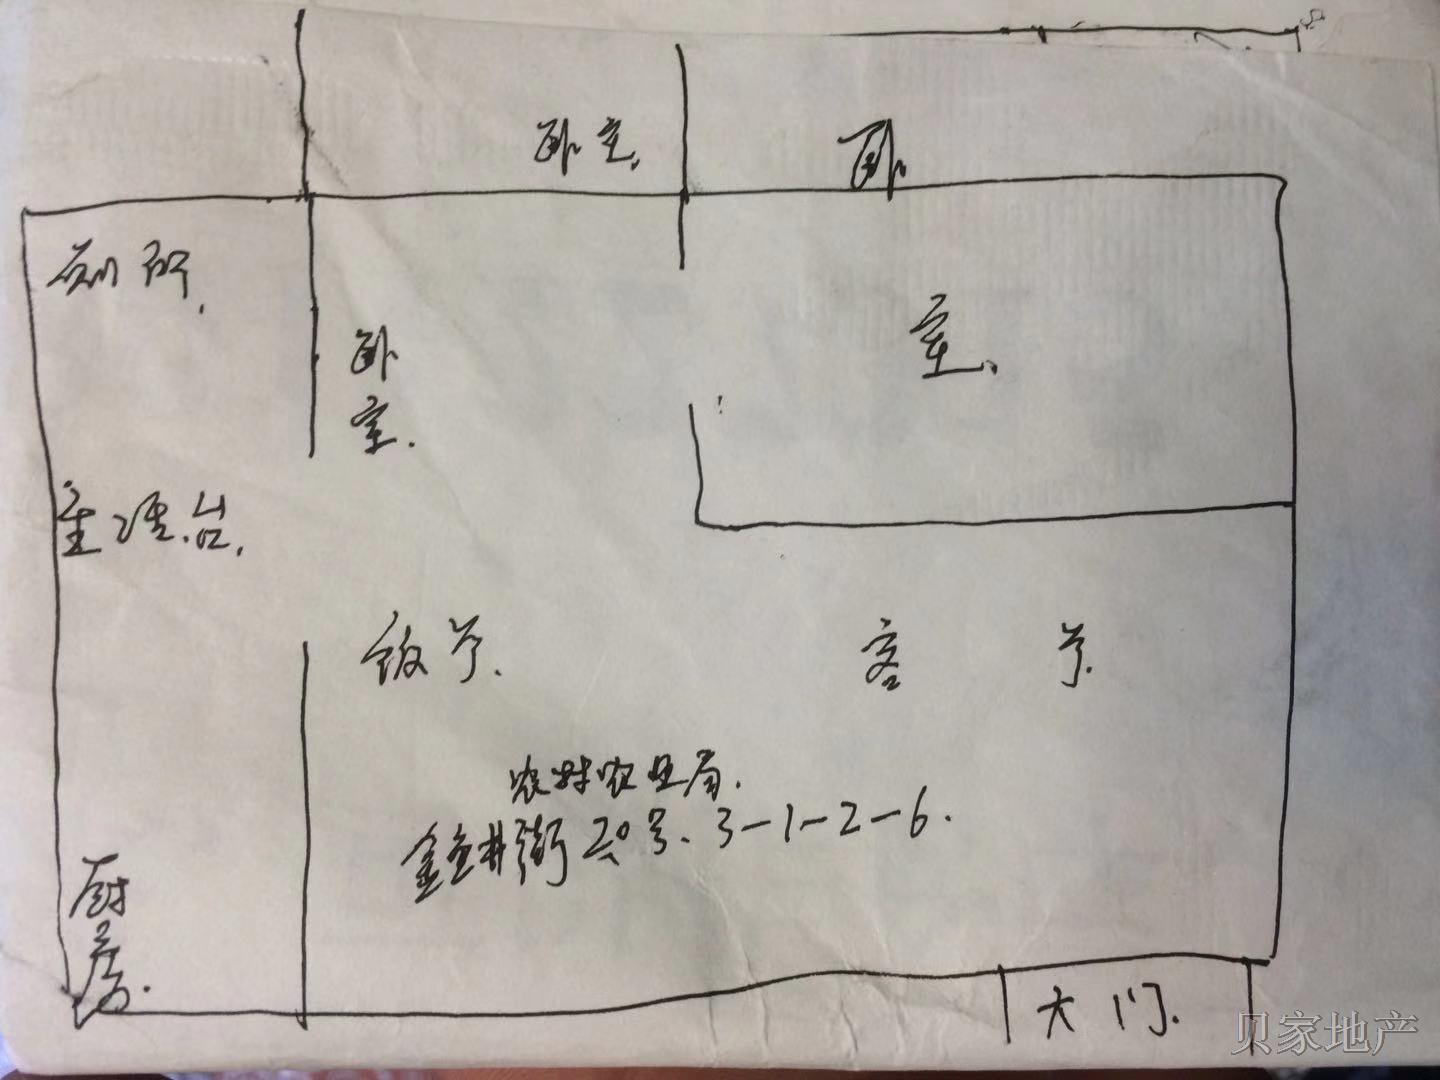 卧室.
卧
室.
厕所.
卧
室.
洗台.
饭厅.
客厅.
农村农业局.
井街20号、3-1-2-6.
厨
房.
大门.
贝家地产